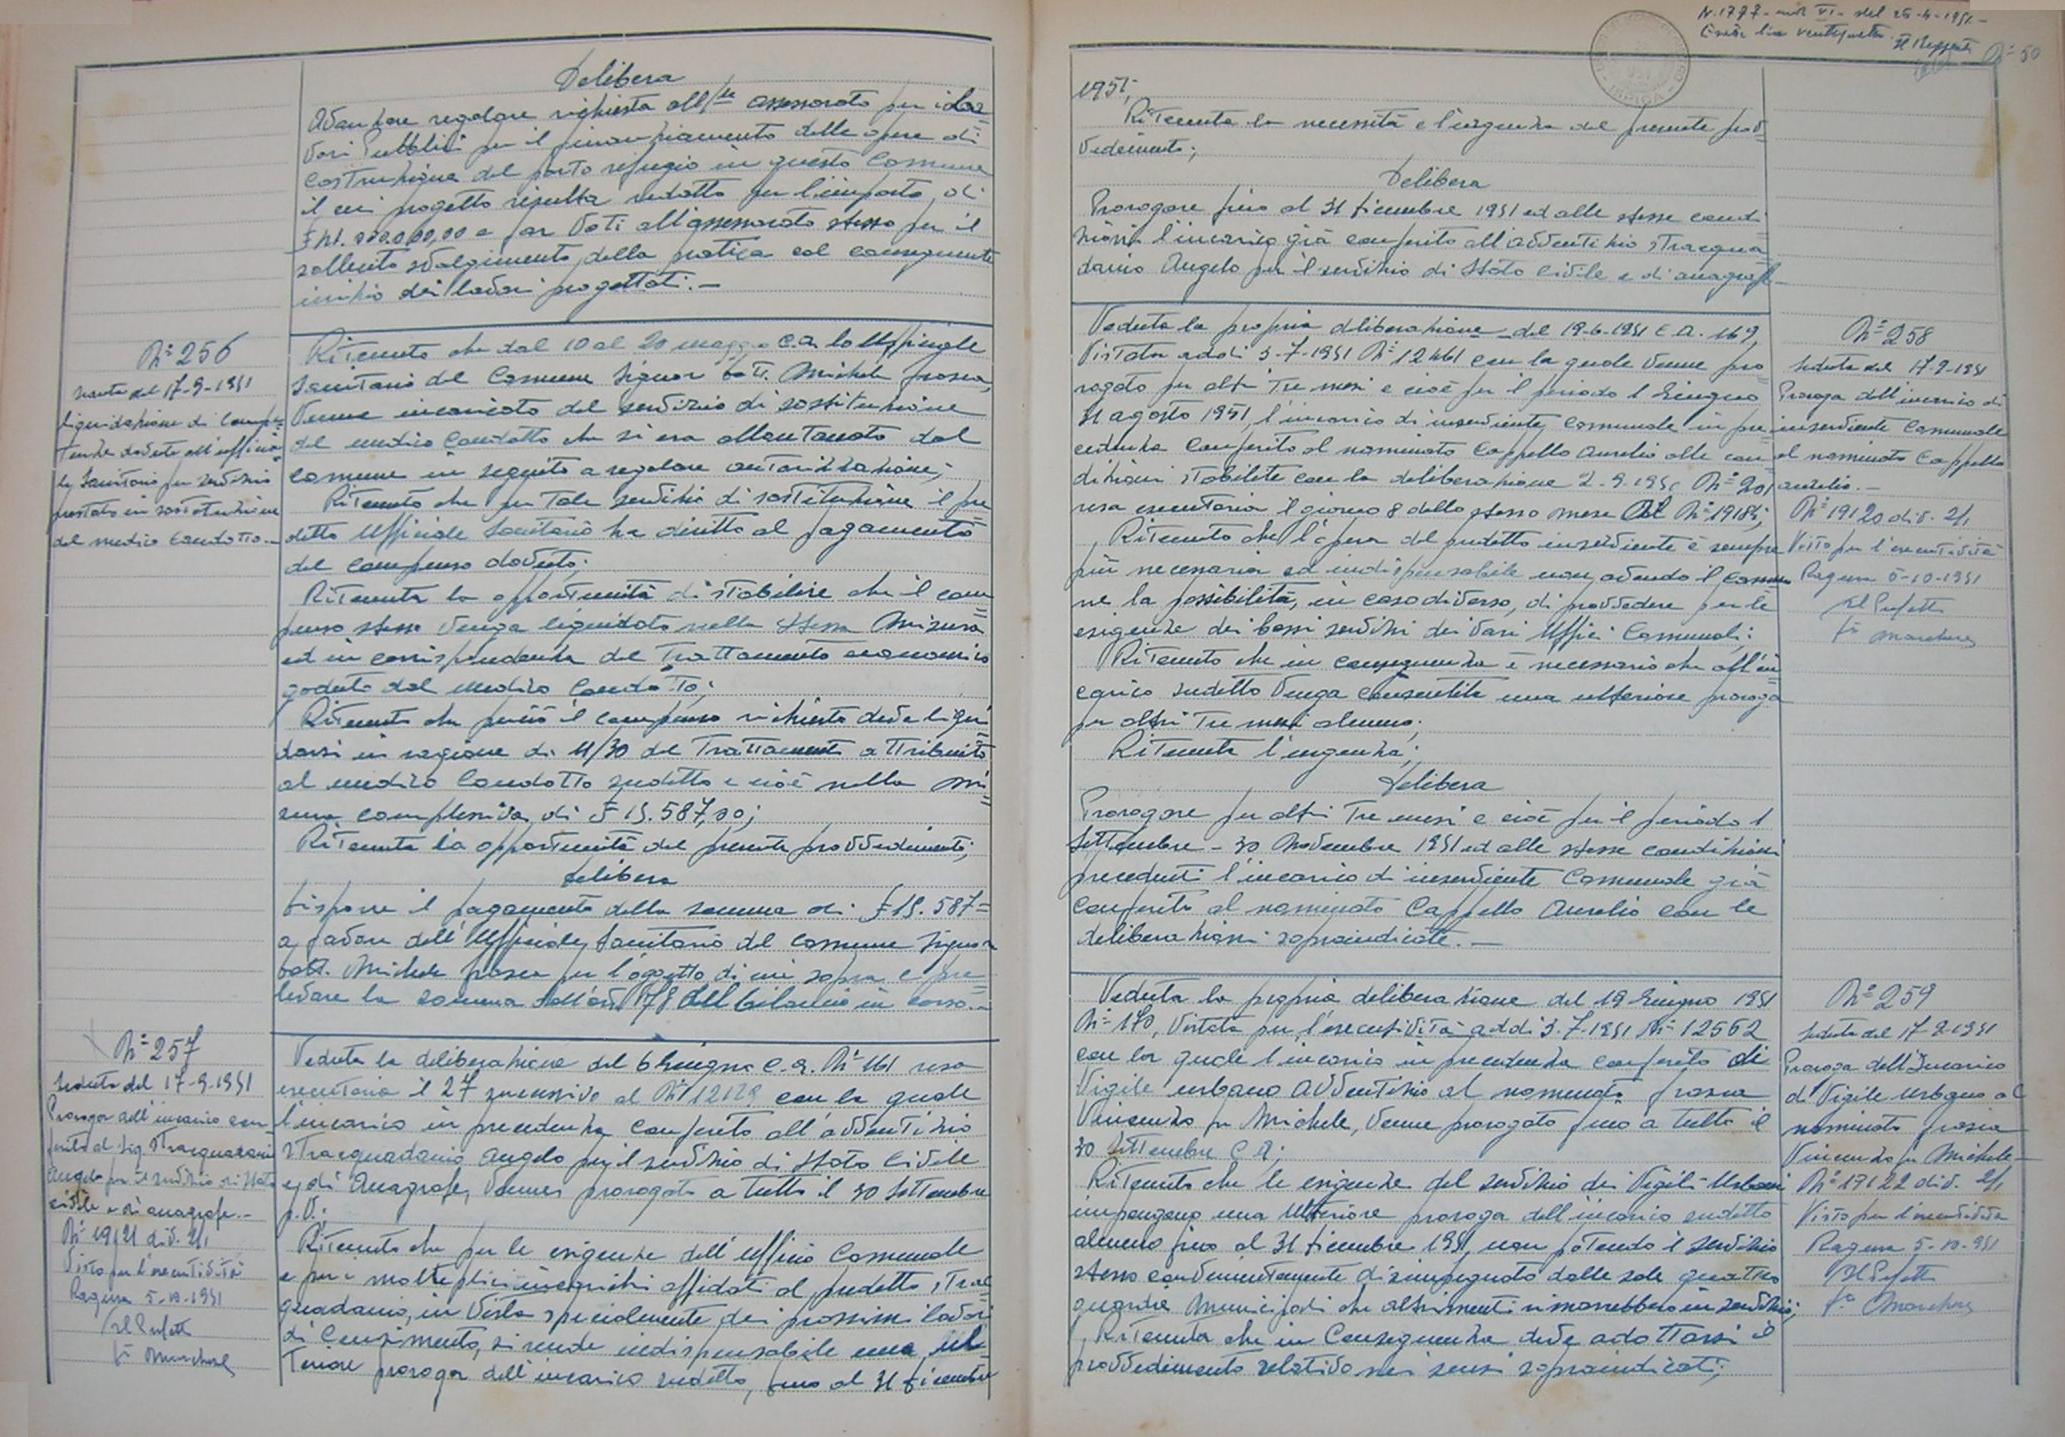 Delibera
Avanzare regolare richiesta all'on/le assessorato per i La=
vori Pubblici per il finanziamento delle opere di
costruzione del porto refugio in questo Comune
il cui progetto risulta redatto per l'importo di
e far voti all'assessorato stesso per il
sollecito svolgimento della pratica col conseguente
inizio dei lavori progettati. —
N° 256
seduta del 17-9-1951
liquidazione di compe=
tenze dovute all'ufficia=
le Sanitario per servizio
prestato in sostituzione
del medico Condotto. —
Ritenuto che dal 10 al 20 maggio c.a. lo Ufficiale
Sanitario del Comune Signor Dott. Michele
venne incaricato del servizio di sostituzione
del medico Condotto che si era allontanato dal
comune in seguito a regolare autorizzazione;
Ritenuto che per tale servizio di sostituzione il pre
detto Ufficiale Sanitario ha diritto al pagamento
del compenso dovuto;
Ritenuta la opportunità di stabilire che il com
penso stesso venga liquidato nella stessa misura
ed in corrispondenza del trattamento economico
goduto dal medico Condotto;
Ritenuto che perciò il compenso richiesto deve liqui
darsi in ragione di 11/30 del trattamento attribuito
al medico Condotto sudetto e cioè nella mi=
sura complessiva di £ 15.587,00;
Ritenuta la opportunità del presente provvedimento;
Delibera
Disporre il pagamento della somma di £ 15.587=
a favore dell'Ufficiale Sanitario del Comune Signor
Dott. Michele per l'oggetto di cui sopra e pre=
levare la somma dall'art. 178 del bilancio in corso. —
N° 257
seduta del 17-9-1951
Proroga dell'incarico con
ferito al Sig. Stracquadanio
Angelo per il servizio di Stato
civile e di anagrafe. —
N° 19121 div. 2/1
Visto per l'esecutività
Ragusa 5-10-1951
Il Prefetto
Veduta la deliberazione del 6 Giugno c.a. N° 161 resa
esecutoria il 27 successivo al N° 12129 con la quale
l'incarico in precedenza conferito all'avventizio
Stracquadanio Angelo per il servizio di Stato Civile
e di Anagrafe, venne prorogato a tutto il 30 settembre
p.v.;
Ritenuto che per le esigenze dell'ufficio Comunale
e per i molteplici incarichi affidati al predetto Strac
quadanio, in vista specialmente dei prossimi lavori
di Censimento, si rende indispensabile una ul=
teriore proroga dell'incarico sudetto, fino al 31 Dicembre
N. 1777 del
N° 50
ISPICA
1951;
Ritenuta la necessità e l'urgenza del presente prov=
vedimento;
Delibera
Prorogare fino al 31 Dicembre 1951 ed alle stesse condi
zioni l'incarico già conferito all'avventizio Stracqua=
danio Angelo per il servizio di Stato Civile e di anagrafe. —
Veduta la propria deliberazione del 19-6-1951 169,
vistata addì 3-7-1951 N° 12461 con la quale venne pro
rogato per altri tre mesi e cioè per il periodo 1 Giugno
31 agosto 1951, l'incarico di inserviente Comunale in pre=
cedenza conferito al nominato Cappello Aurelio alle con=
dizioni stabilite con la deliberazione N° 201
resa esecutoria il giorno 8 dello stesso mese al N° 19184;
Ritenuto che l'opera del predetto inserviente è sempre
più necessaria ed indispensabile non avendo il Comu
ne la possibilità, in caso diverso, di provvedere per le
esigenze dei bassi servizi dei vari Uffici Comunali;
Ritenuto che in conseguenza è necessario che all'in=
carico sudetto venga consentita una ulteriore proroga
per altri tre mesi almeno;
Ritenuta l'urgenza;
Delibera
Prorogare per altri tre mesi e cioè per il periodo 1
Settembre - 30 Novembre 1951 ed alle stesse condizioni
precedenti l'incarico di inserviente Comunale già
conferito al nominato Cappello Aurelio con le
deliberazioni sopraindicate. —
N° 258
seduta del 17-9-1951
Proroga dell'incarico di
inserviente Comunale
al nominato Cappello
Aurelio. —
N° 19120 div. 2/1
Visto per l'esecutività
Ragusa 5-10-1951
Il Prefetto
Veduta la propria deliberazione del 19 Giugno 1951
N° 170, vistata per l'esecutività addì 3-7-1951 N° 12562
con la quale l'incarico in precedenza conferito di
Vigile urbano avventizio al nominato
Vincenzo fu Michele, venne prorogato fino a tutto il
30 settembre c.a.;
Ritenuto che le esigenze del servizio dei Vigili Urbani
impongono una ulteriore proroga dell'incarico sudetto
almeno fino al 31 Dicembre 1951, non potendo il servizio
stesso convenientemente disimpegnato dalle sole quattro
guardie Municipali che altrimenti rimarrebbero in servizio;
Ritenuta che in conseguenza deve adottarsi il
provvedimento relativo nei sensi sopraindicati;
N° 259
seduta del 17-9-1951
Proroga dell'Incarico
di Vigile Urbano al
nominato
Vincenzo fu Michele —
N° 19122 div. 2/1
Visto per l'esecutività
Ragusa 5-10-951
Il Prefetto